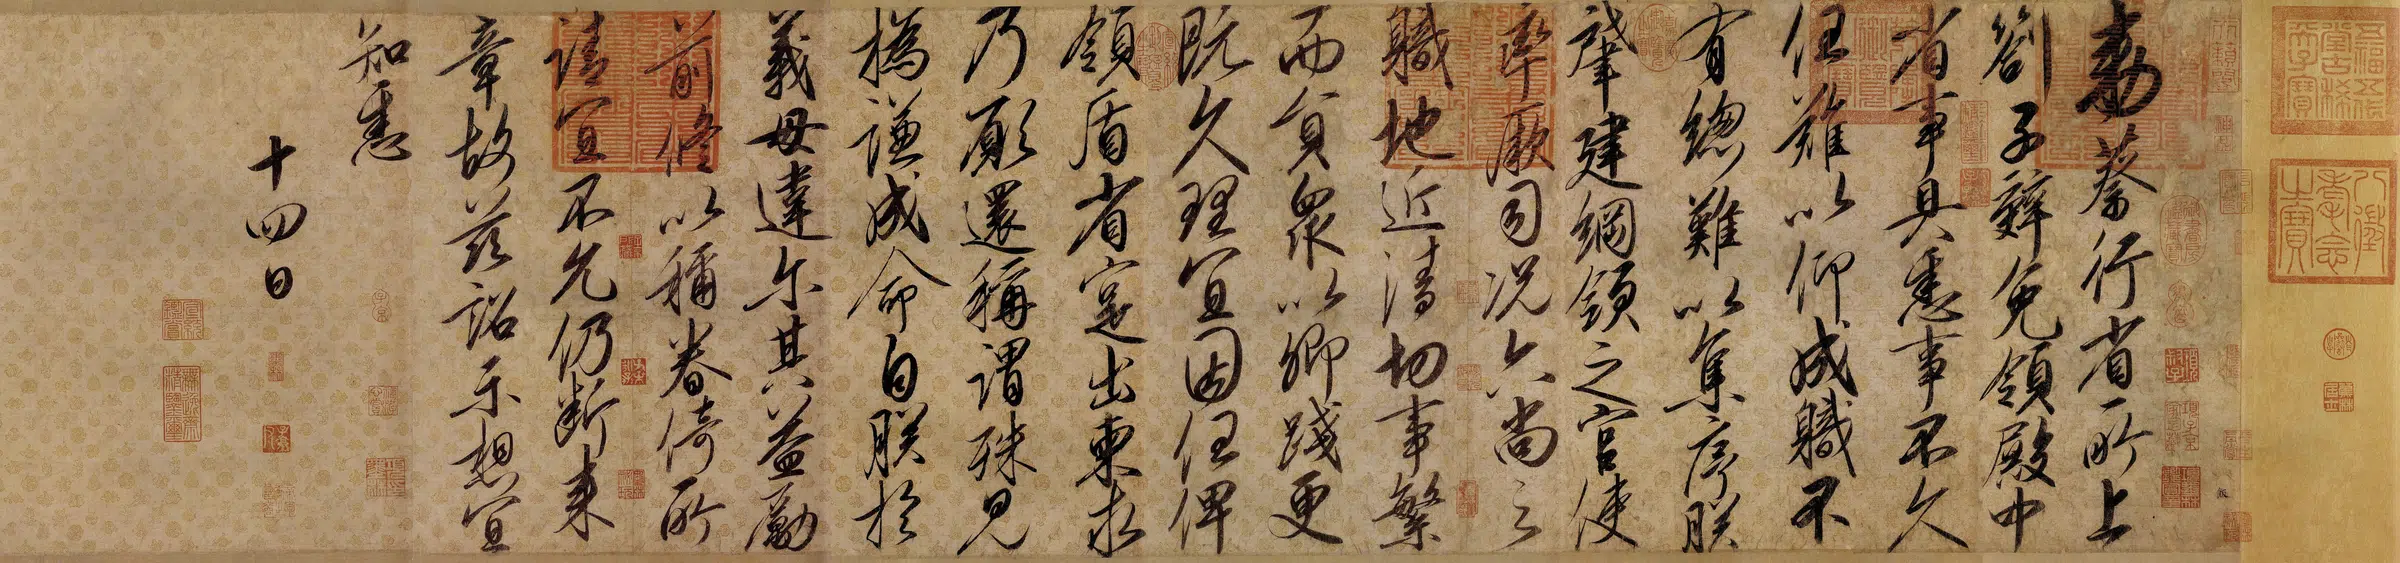 敕蔡行省所上
劄子辭免領殿中
省事具悉事不久
任難以仰成職不
有總難以集序朕
肇建綱領之官使
率厥司況六尚之
職地近清切事繁
而員眾以卿踐更
既久理宜因任俾
領盾省寔出柬求
乃願還稱謂殊見
撝謙成命自朕於
義毋違爾其益勵
前修以稱眷倚所
請宜不允仍斷來
章故茲詔示想宜
知悉
十四日
五福五代堂古稀天子寶
八徵耄念之寶